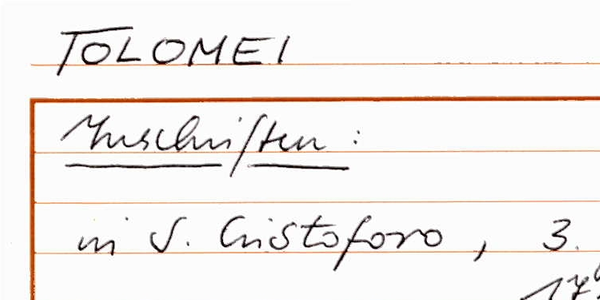 TOLOMEI
Inschriften:
in S. Cristoforo, 3.
17